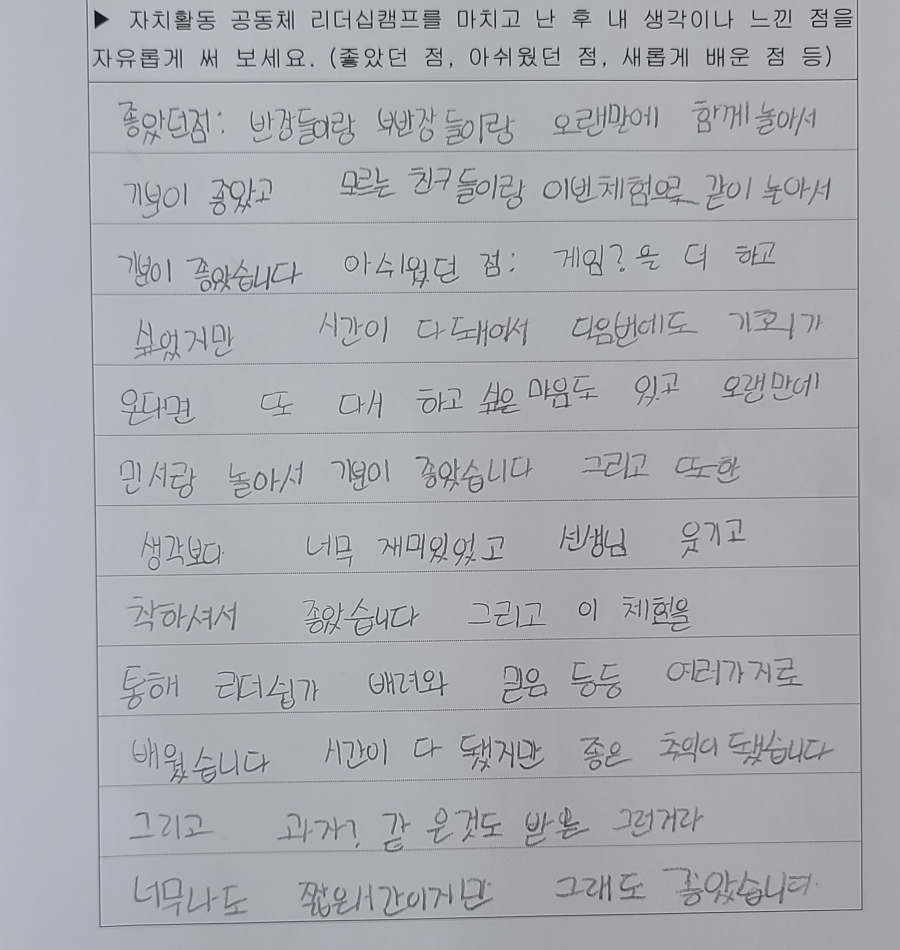 ▶ 자치활동 공동체 리더십캠프를 마치고 난 후 내 생각이나 느낀 점을
자유롭게 써 보세요. (좋았던 점, 아쉬웠던 점, 새롭게 배운 점 등)
좋았던점: 반장들이랑 부반장들이랑 오랜만에 함께 놀아서
기분이 좋았고 모르는 친구들이랑 이번체험으로 같이 놀아서
기분이 좋았습니다 아쉬웠던 점: 게임?을 더 하고
싶었지만 시간이 다돼어서 다음번에도 기회가
온다면 또 다시 하고 싶은 마음도 있고 오랜만에
민서랑 놀아서 기분이 좋았습니다 그리고 또한
생각보다 너무 재미있었고 선생님 웃기고
착하셔서 좋았습니다 그리고 이 체험을
통해 리더쉽가 배려와 믿음 등등 여러가지로
배웠습니다 시간이 다 됐지만 좋은 추억이 됐습니다
그리고 과자? 같은것도 받은 그런거라
너무나도 짧은시간이지만 그래도 좋았습니다.